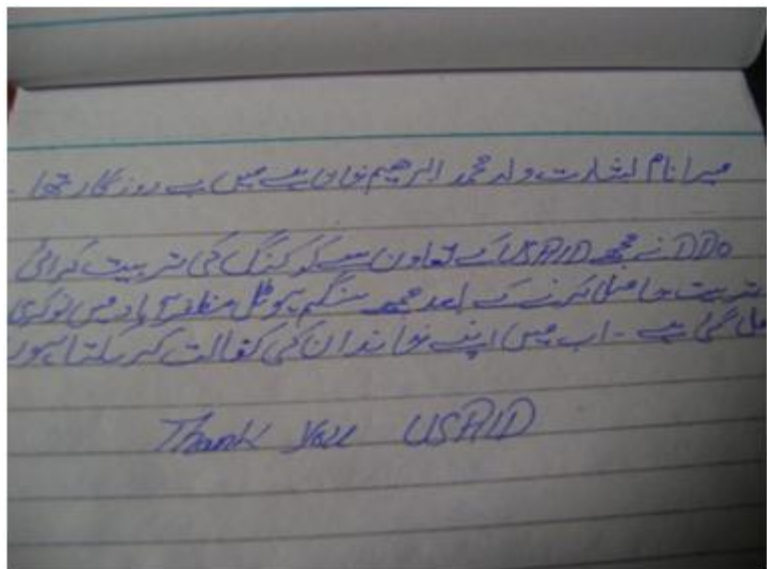 میرا نام بشارت ولد محمد ابراھیم خان ہے میں بے روزگار تھا۔
DDO نے مجھے USAID کے تعاون سے کوکنگ کی تربیت کرائی
تربیت حاصل کرنے کے بعد مجھے سنگم ہوٹل مظفرآباد میں نوکری
مل گئی ہے۔ اب میں اپنے خاندان کی کفالت کر سکتا ہوں
Thank You USAID